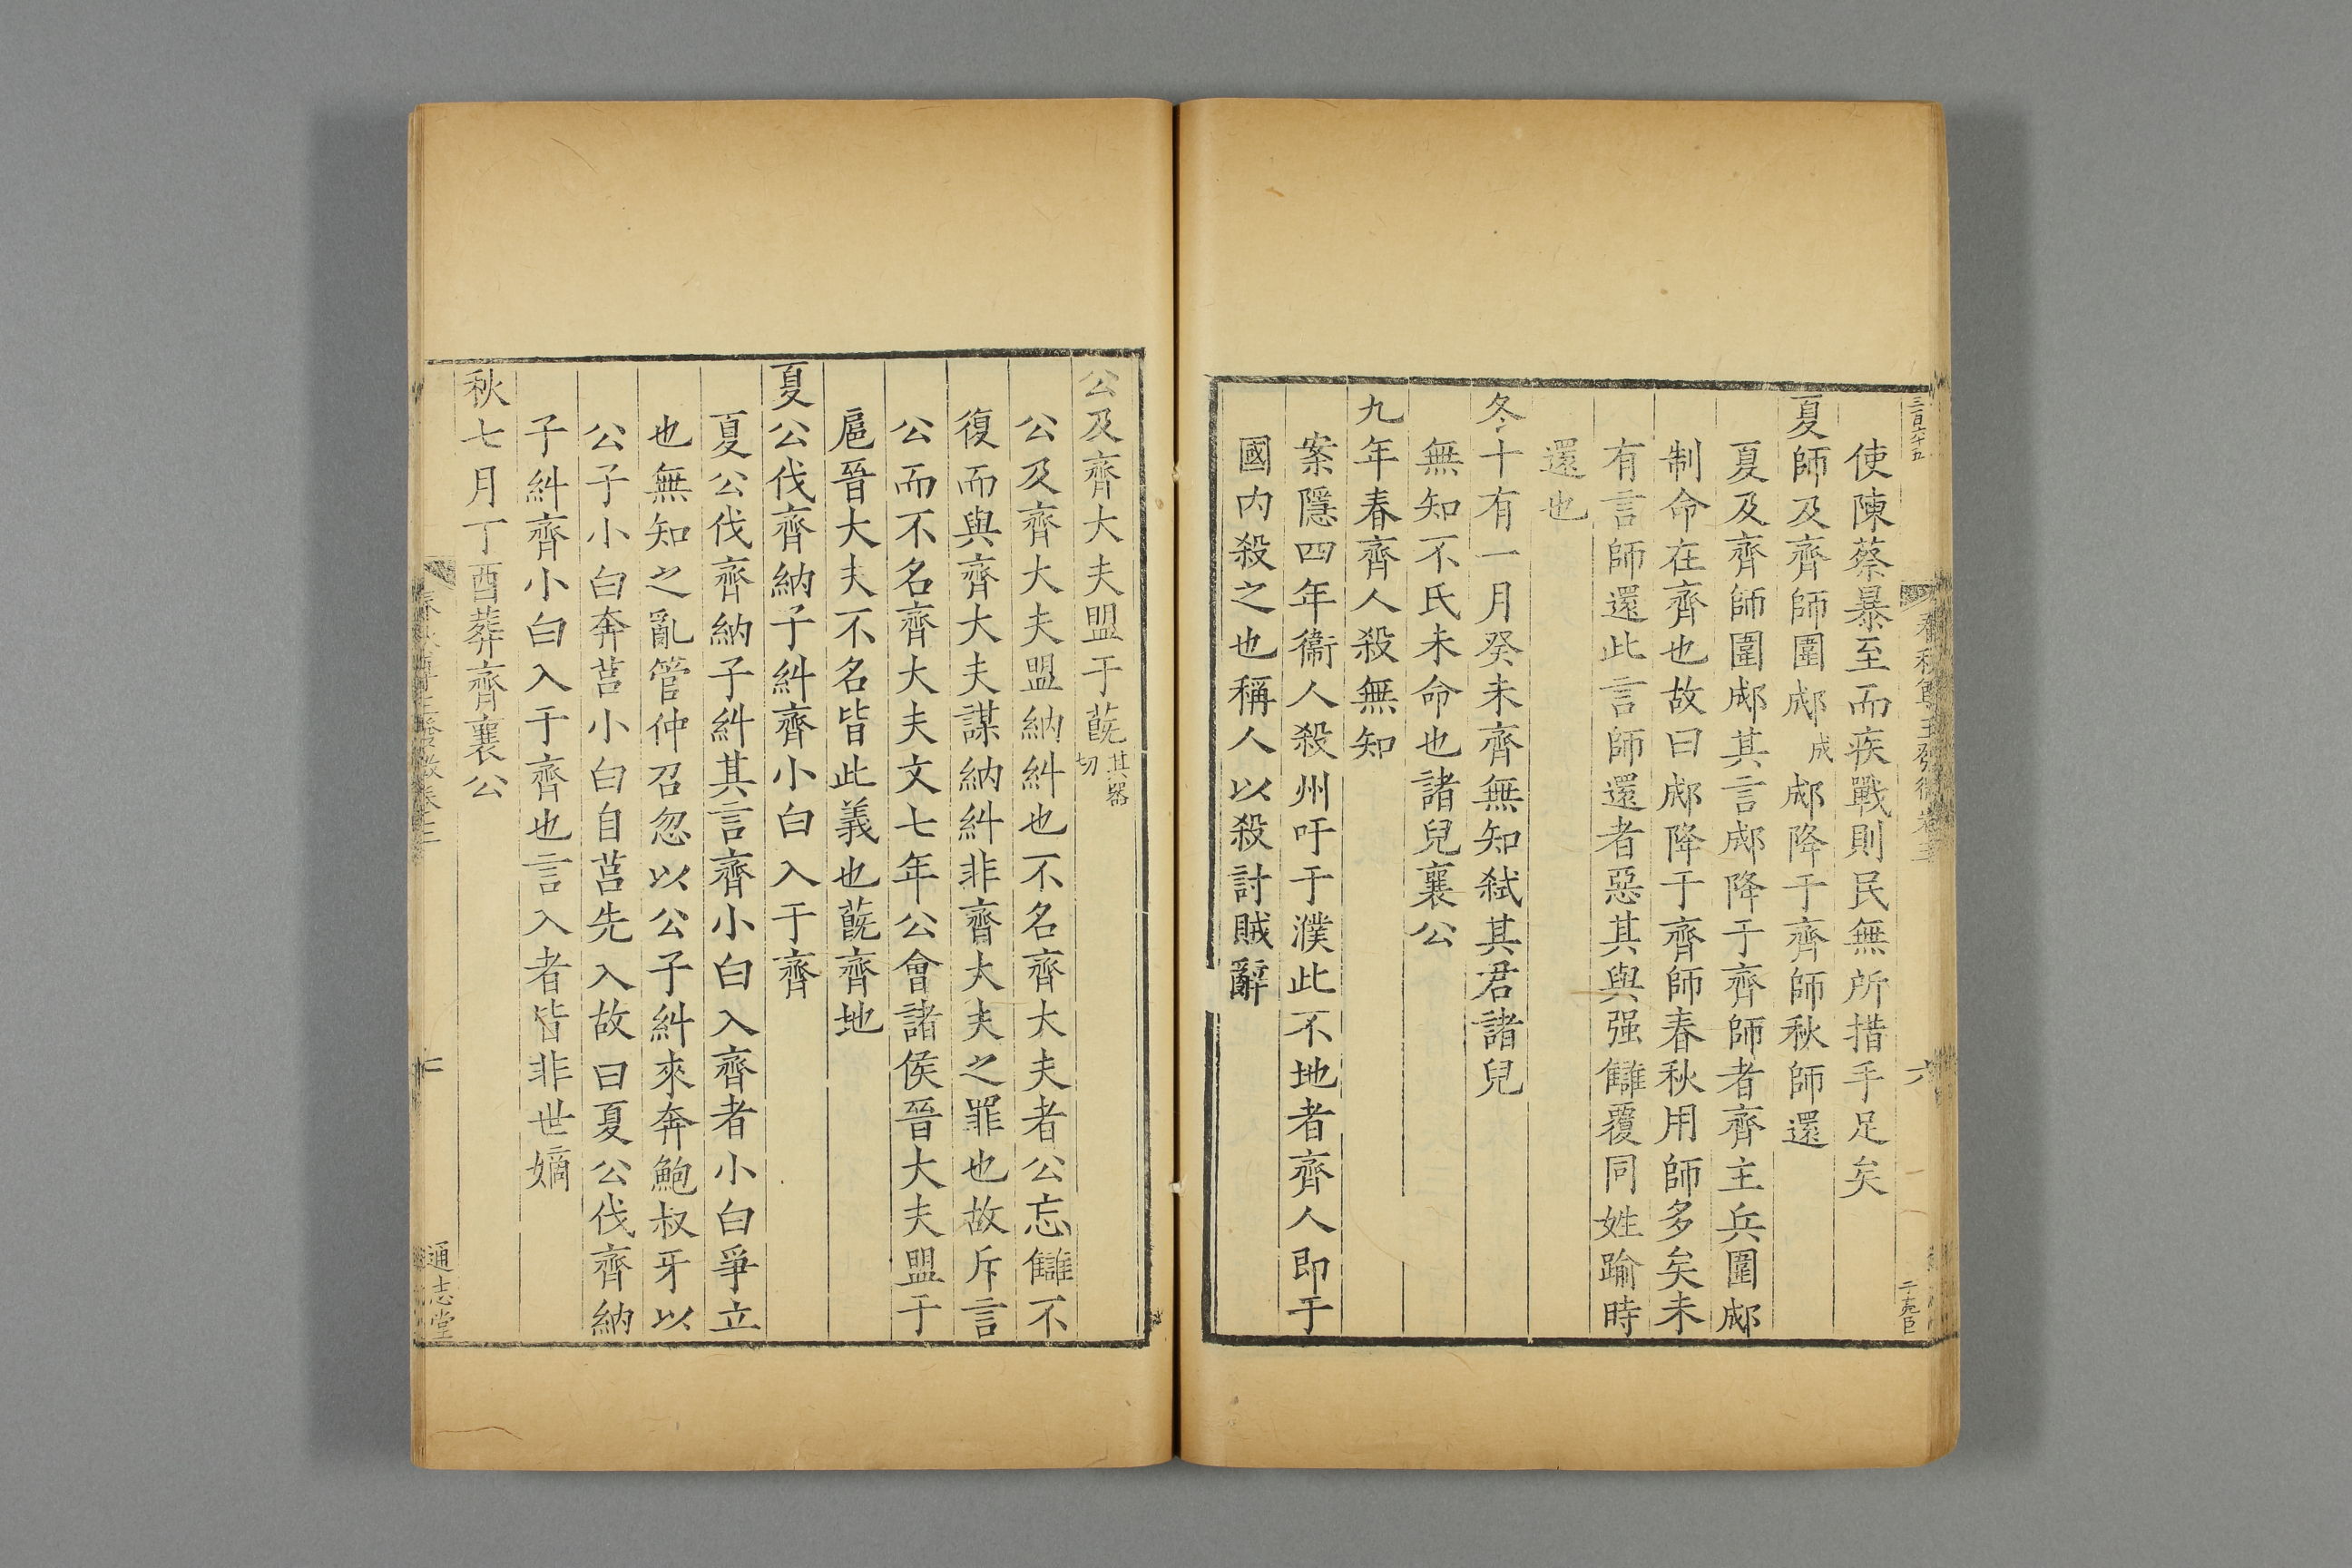 三百六十五
使陳蔡暴至而疾戰則民無所措手足矣
夏師及齊師圍郕成郕降于齊師秋師還
夏及齊師圍郕其言郕降于齊師者齊主兵圍郕
制命在齊也故曰郕降于齊師春秋用師多矣未
有言師還此言師還者惡其與强讎覆同姓踰時
還也
冬十有一月癸未齊無知弒其君諸兒
無知不氏未命也諸兒襄公
九年春齊人殺無知
案隱四年衞人殺州吁于濮此不地者齊人即于
國內殺之也稱人以殺討賊辭
公及齊大夫盟于蔇其器切
公及齊大夫盟納糾也不名齊大夫者公忘讎不
復而與齊大夫謀納糾非齊大夫之罪也故斥言
公而不名齊大夫文七年公會諸侯晉大夫盟于
扈晉大夫不名皆此義也蔇齊地
夏公伐齊納子糾齊小白入于齊
夏公伐齊納子糾其言齊小白入齊者小白爭立
也無知之亂管仲召忽以公子糾來奔鮑叔牙以
公子小白奔莒小白自莒先入故曰夏公伐齊納
子糾齊小白入于齊也言入者皆非世嫡
秋七月丁酉葬齊襄公
通志堂